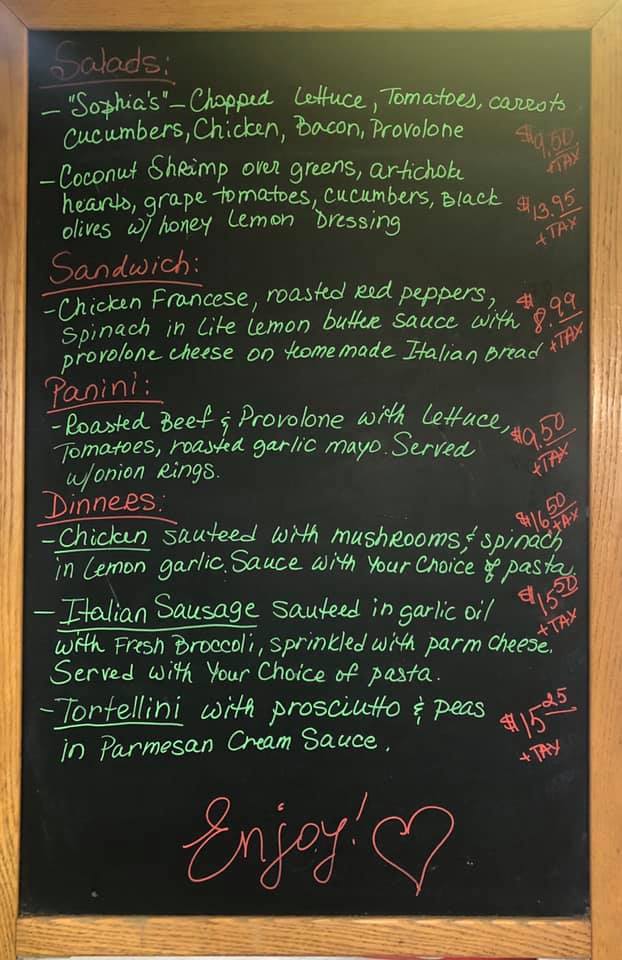 Salads:
- "Sophia's" - Chopped Lettuce, Tomatoes, carrots
cucumbers, Chicken, Bacon, Provolone
$9.50
+TAX
- Coconut Shrimp over greens, artichoke
hearts, grape tomatoes, cucumbers, Black
olives w/ honey Lemon Dressing
$13.95
+TAX
Sandwich:
- Chicken Francese, roasted Red peppers,
Spinach in Lite Lemon butter sauce with
provolone cheese on Homemade Italian Bread
$8.99
+TAX
Panini:
- Roasted Beef & Provolone with Lettuce,
Tomatoes, roasted garlic mayo. Served
w/onion Rings.
$9.50
+TAX
Dinners:
$16.50
+TAX
- Chicken sauteed with mushrooms & spinach
in Lemon garlic. Sauce with Your Choice of pasta
$15.50
+TAX
- Italian Sausage sauteed in garlic oil
with Fresh Broccoli, sprinkled with parm Cheese.
Served with Your Choice of pasta.
- Tortellini with prosciutto & peas
in Parmesan Cream Sauce.
$15.25
+TAX
Enjoy!